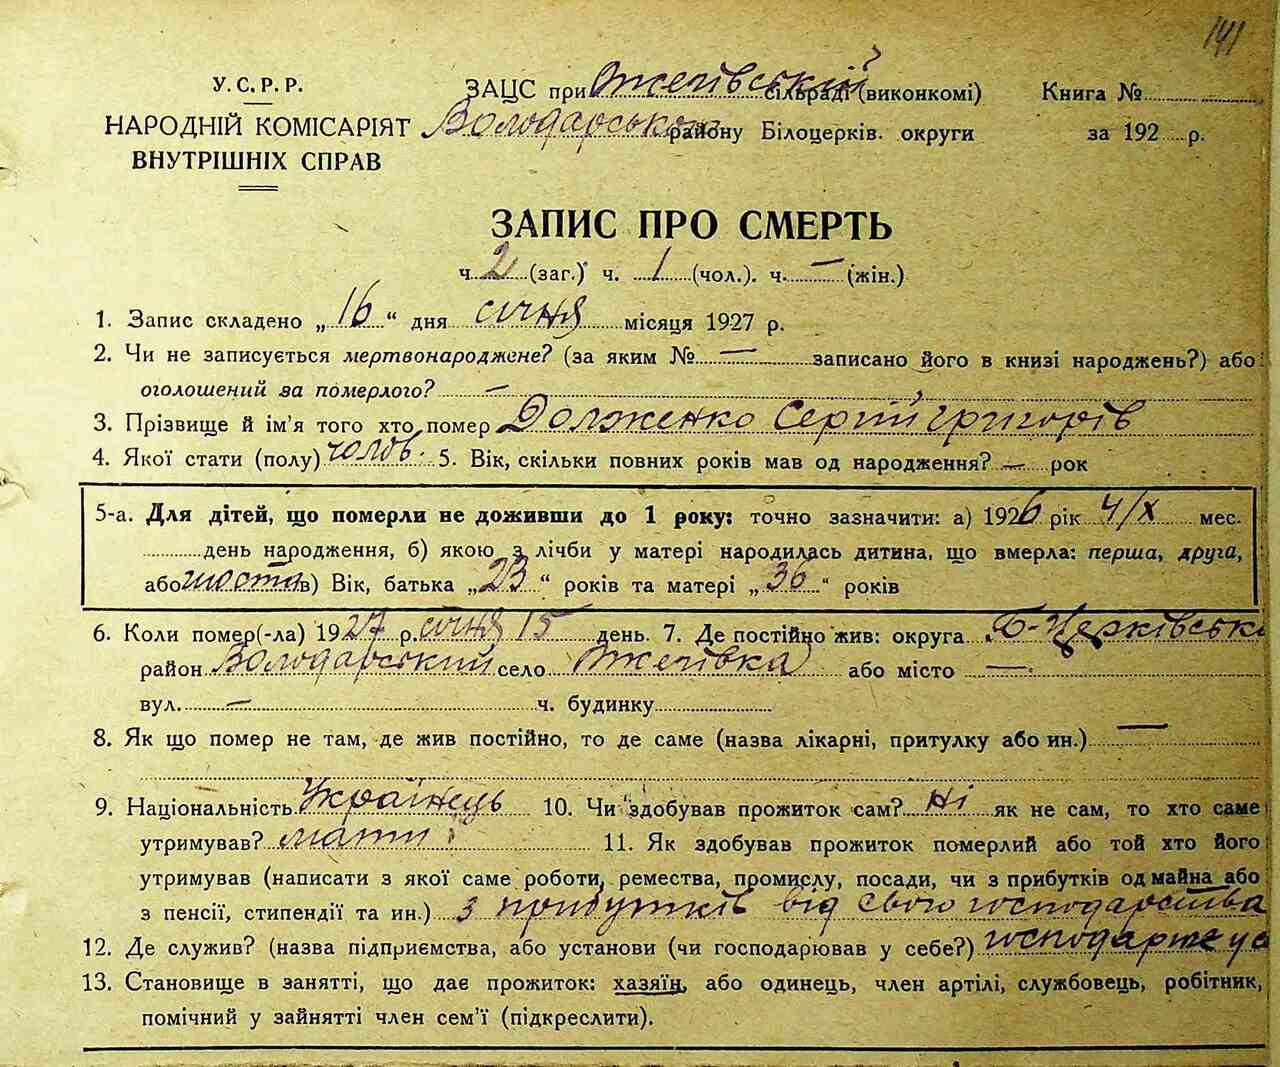 141
У. С. Р. Р.
НАРОДНІЙ КОМІСАРІЯТ
ВНУТРІШНІХ СПРАВ
ЗАЦС при Ожегівській сільраді (виконкомі) Книга №
Володарського району Білоцерків. округи за 192 р.
ЗАПИС ПРО СМЕРТЬ
ч. 2 (заг.) ч. 1 (чол.). ч. — (жін.)
1. Запис складено „16“ дня січня місяця 1927 р.
2. Чи не записується мертвонароджене? (за яким № — записано його в книзі народжень?) або
оголошений за померлого? —
3. Прізвище й ім'я того хто помер Долженко Сергій Григорів
4. Якої стати (полу) чолов. 5. Вік, скільки повних років мав од народження? — рок
5-а. Для дітей, що померли не доживши до 1 року: точно зазначити: а) 1926 рік 4/X мес.
день народження, б) якою з лічби у матері народилась дитина, що вмерла: перша, друга,
або шоста в) Вік, батька „23“ років та матері „36“ років
6. Коли помер(-ла) 1927 р. січня 15 день. 7. Де постійно жив: округа Б-Церківська
район Володарський село Ожегівка або місто —
вул. — ч. будинку
8. Як що помер не там, де жив постійно, то де саме (назва лікарні, притулку або ин.) —
9. Національність Українець 10. Чи здобував прожиток сам? ні як не сам, то хто саме
утримував? мати 11. Як здобував прожиток померлий або той хто його
утримував (написати з якої саме роботи, ремества, промислу, посади, чи з прибутків од майна або
з пенсії, стипендії та ин.) з прибутків від свого господарства
12. Де служив? (назва підприємства, або установи (чи господарював у себе?) господарює у се
13. Становище в занятті, що дає прожиток: хазяїн, або одинець, член артілі, службовець, робітник,
помічний у зайнятті член сем'ї (підкреслити).